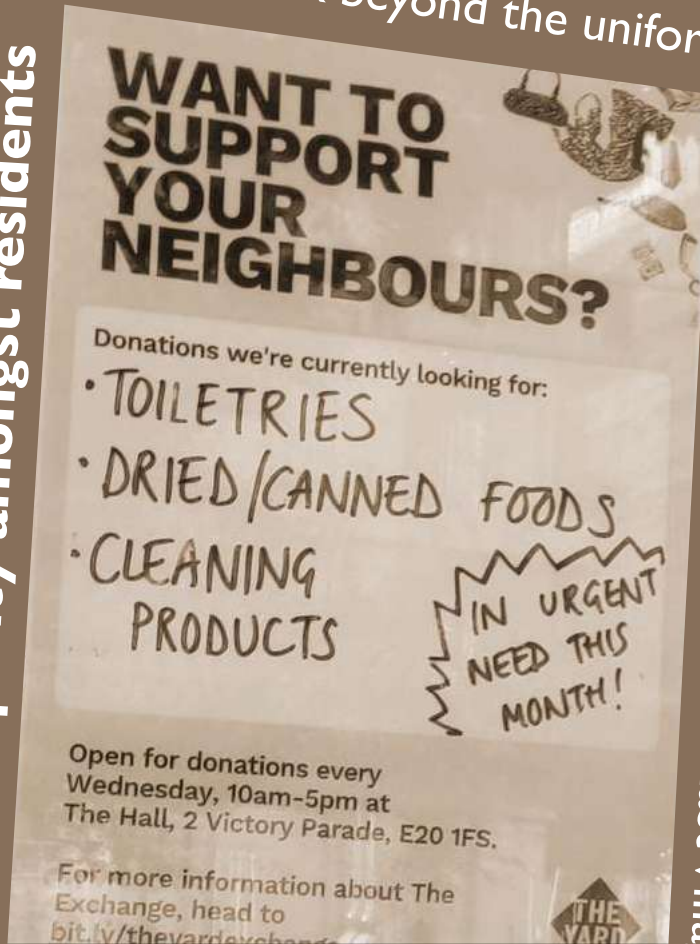 beyond the
amongst residents
WANT TO
SUPPORT
YOUR
NEIGHBOURS?
Donations we're currently looking for:
• TOILETRIES
• DRIED/CANNED FOODS
• CLEANING
PRODUCTS
IN URGENT
NEED THIS
MONTH!
Open for donations every
Wednesday, 10am-5pm at
The Hall, 2 Victory Parade, E20 1FS.
For more information about The
Exchange, head to
THE
YARD